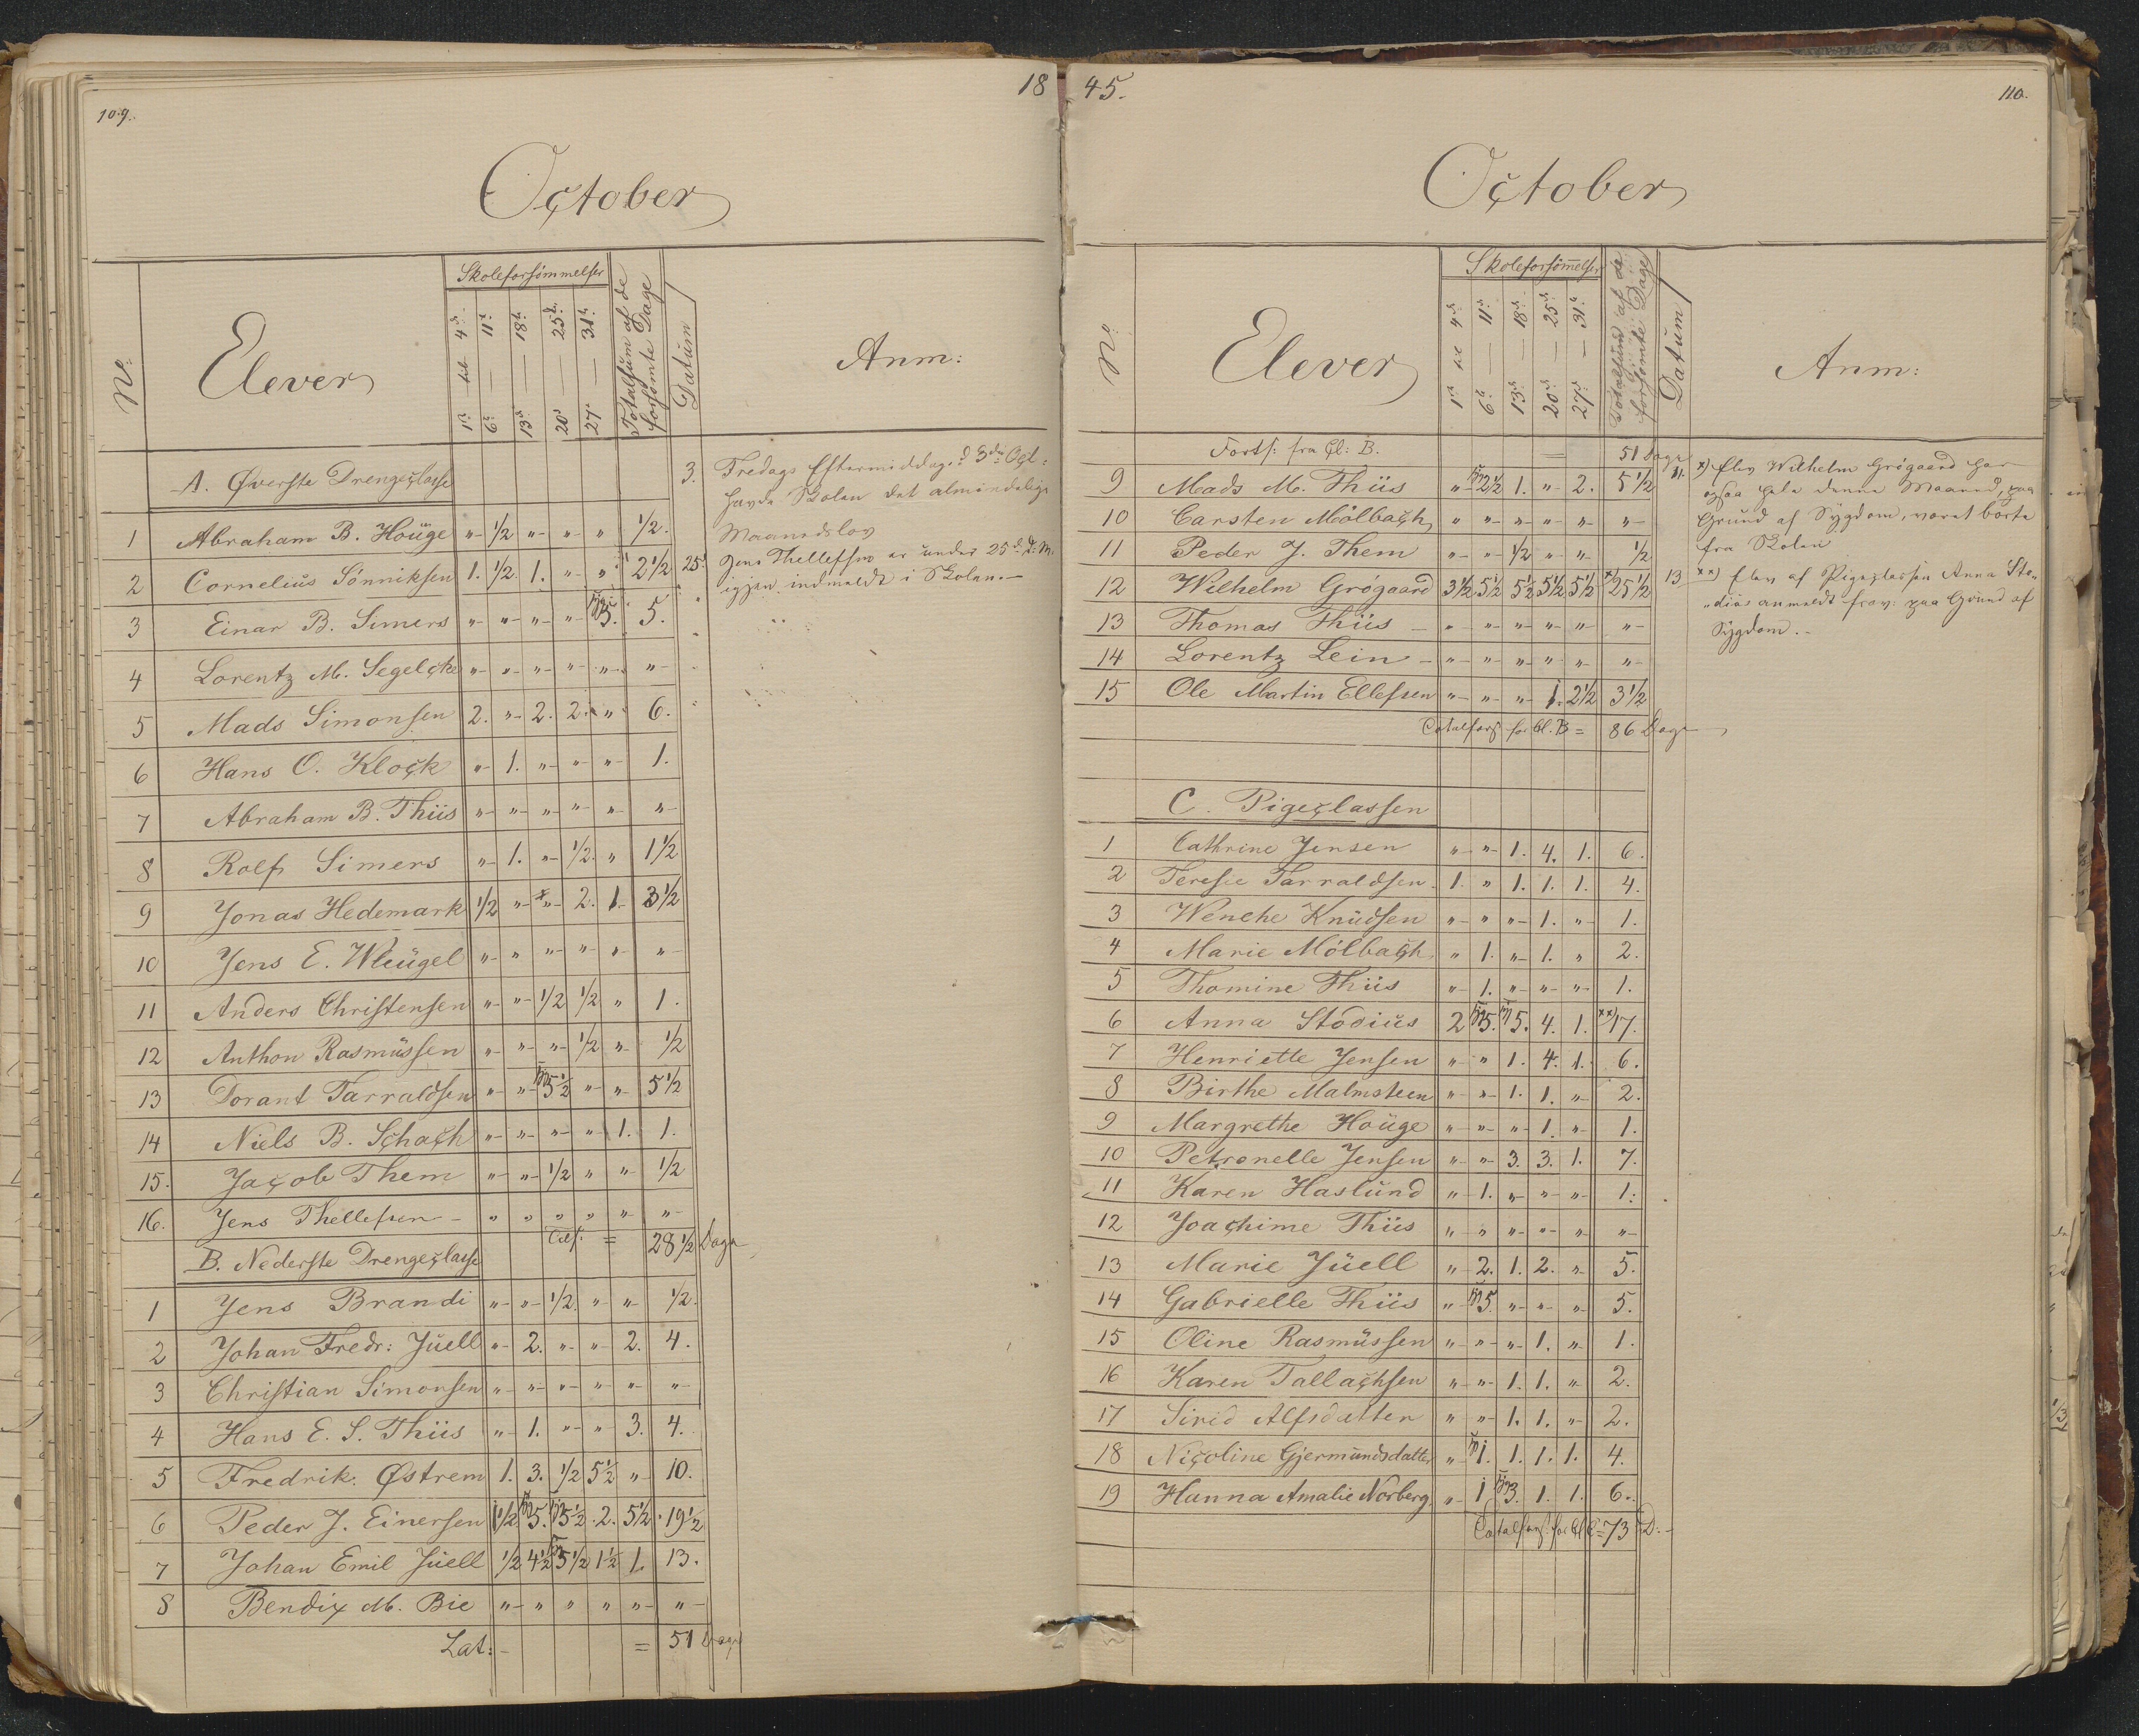 109.
18
October
No:
Elever
Skoleforsömmelser
1ste til 4de
6te — 11te
13de — 18de
20de — 25de
27de — 31te
Totalsum af de forsömte Dage
Datum
Anm:
A. Øverste Drengeclasse
3. Fredags Eftermiddag d 3die Oct:
havde Skolen det almindelige
Maanedslov
1 Abraham B. Houge " ½ " " " ½.
2 Cornelius Sönniksen 1. ½. 1. " " 2½
25. Jens Thellefsen er under 25de d: M.
igjen indmeldt i Skolen.—
3 Einar B. Simers " " " " 5. 5.
4 Lorentz M. Segelcke " " " " " "
5 Mads Simonsen 2. " 2. 2. " 6.
6 Hans O. Klock " 1. " " " 1.
7 Abraham B. Thiis " " " " " "
8 Rolf Simers " 1. " ½. " 1½
9 Jonas Hedemark ½ " " 2. 1. 3½
10 Jens E. Wleugel " " " " " "
11 Anders Christensen " " ½ ½ " 1.
12 Anthon Rasmussen " " " ½ " ½
13 Dorant Tarraldsen " " 5½ " " 5½
14 Niels B. Schach " " " " 1. 1.
15. Jacob Them " " ½ " " ½
16. Jens Thellefsen " " " " " "
Tils: = 28½ Dage
B. Nederste Drengeclasse
1 Jens Brandi " " ½. " " ½.
2 Johan Fredr: Juell " 2. " " 2. 4.
3 Christian Simonsen " " " " " "
4 Hans E. S. Thiis " 1. " " 3. 4.
5 Fredrik Østrem 1. 3. ½ 5½ " 10.
6 Peder J. Einersen 1½ 5. 5½ 2. 5½ 19½
7 Johan Emil Juell ½ 4½ 5½ 1½ 1. 13.
8 Bendix M. Bie " " " " " "
Lat: = 51 Dage
45.
110.
October
No:
Elever
Skoleforsömelser
1ste til 4de
6te — 11te
13de — 18de
20de — 25de
27de — 31te
Totalsum af de forsömte Dage
Datum
Anm:
Forts: fra Cl: B. = 51 Dage
9 Mads M. Thiis " 2½ 1. " 2. 5½
11. x) Elev Wilhelm Grögaard har
ogsaa hele denne Maaned, paa
Grund af Sygdom, været borte
fra Skolen
10 Carsten Mölbach " " " " " "
11 Peder J. Them " " ½ " " ½
12 Wilhelm Grögaard 3½ 5½ 5½ 5½ 5½ x) 25½
13 xx) Elev af Pigeclassen Anna Sto-
"dius anmeldt frav: paa Grund af
Sygdom.-
13 Thomas Thiis " " " " " "
14 Lorentz Lein " " " " " "
15 Ole Martin Ellefsen " " " 1. 2½ 3½
Totalfors for Cl. B = 86 Dage
C. Pigeclassen
1 Cathrine Jensen " " 1. 4. 1. 6.
2 Terese Tarraldsen 1. " 1. 1. 1. 4.
3 Wenche Knudsen " " " 1. " 1.
4 Marie Mölbach " 1. " 1. " 2.
5 Thomine Thiis " 1. " " " 1.
6 Anna Stodius 2 5. 5. 4. 1. xx) 17.
7 Henriette Jensen " " 1. 4. 1. 6.
8 Birthe Malmsteen " " 1. 1. " 2.
9 Margrethe Houge " " " 1. " 1.
10 Petronelle Jensen " " 3. 3. 1. 7.
11 Karen Haslund " 1. " " " 1.
12 Joachime Thiis " " " " " "
13 Marie Juell " 2. 1. 2. " 5.
14 Gabrielle Thiis " 5. " " " 5.
15 Oline Rasmussen " " " 1. " 1.
16 Karen Tallachsen " " 1. 1. " 2.
17 Sirid Alfsdatter " " 1. 1. " 2.
18 Nicoline Gjermundsdatter " 1. 1. 1. 1. 4.
19 Hanna Amalie Norberg " 1 3. 1. 1. 6.
Totalfors. for Cl C = 73 D: